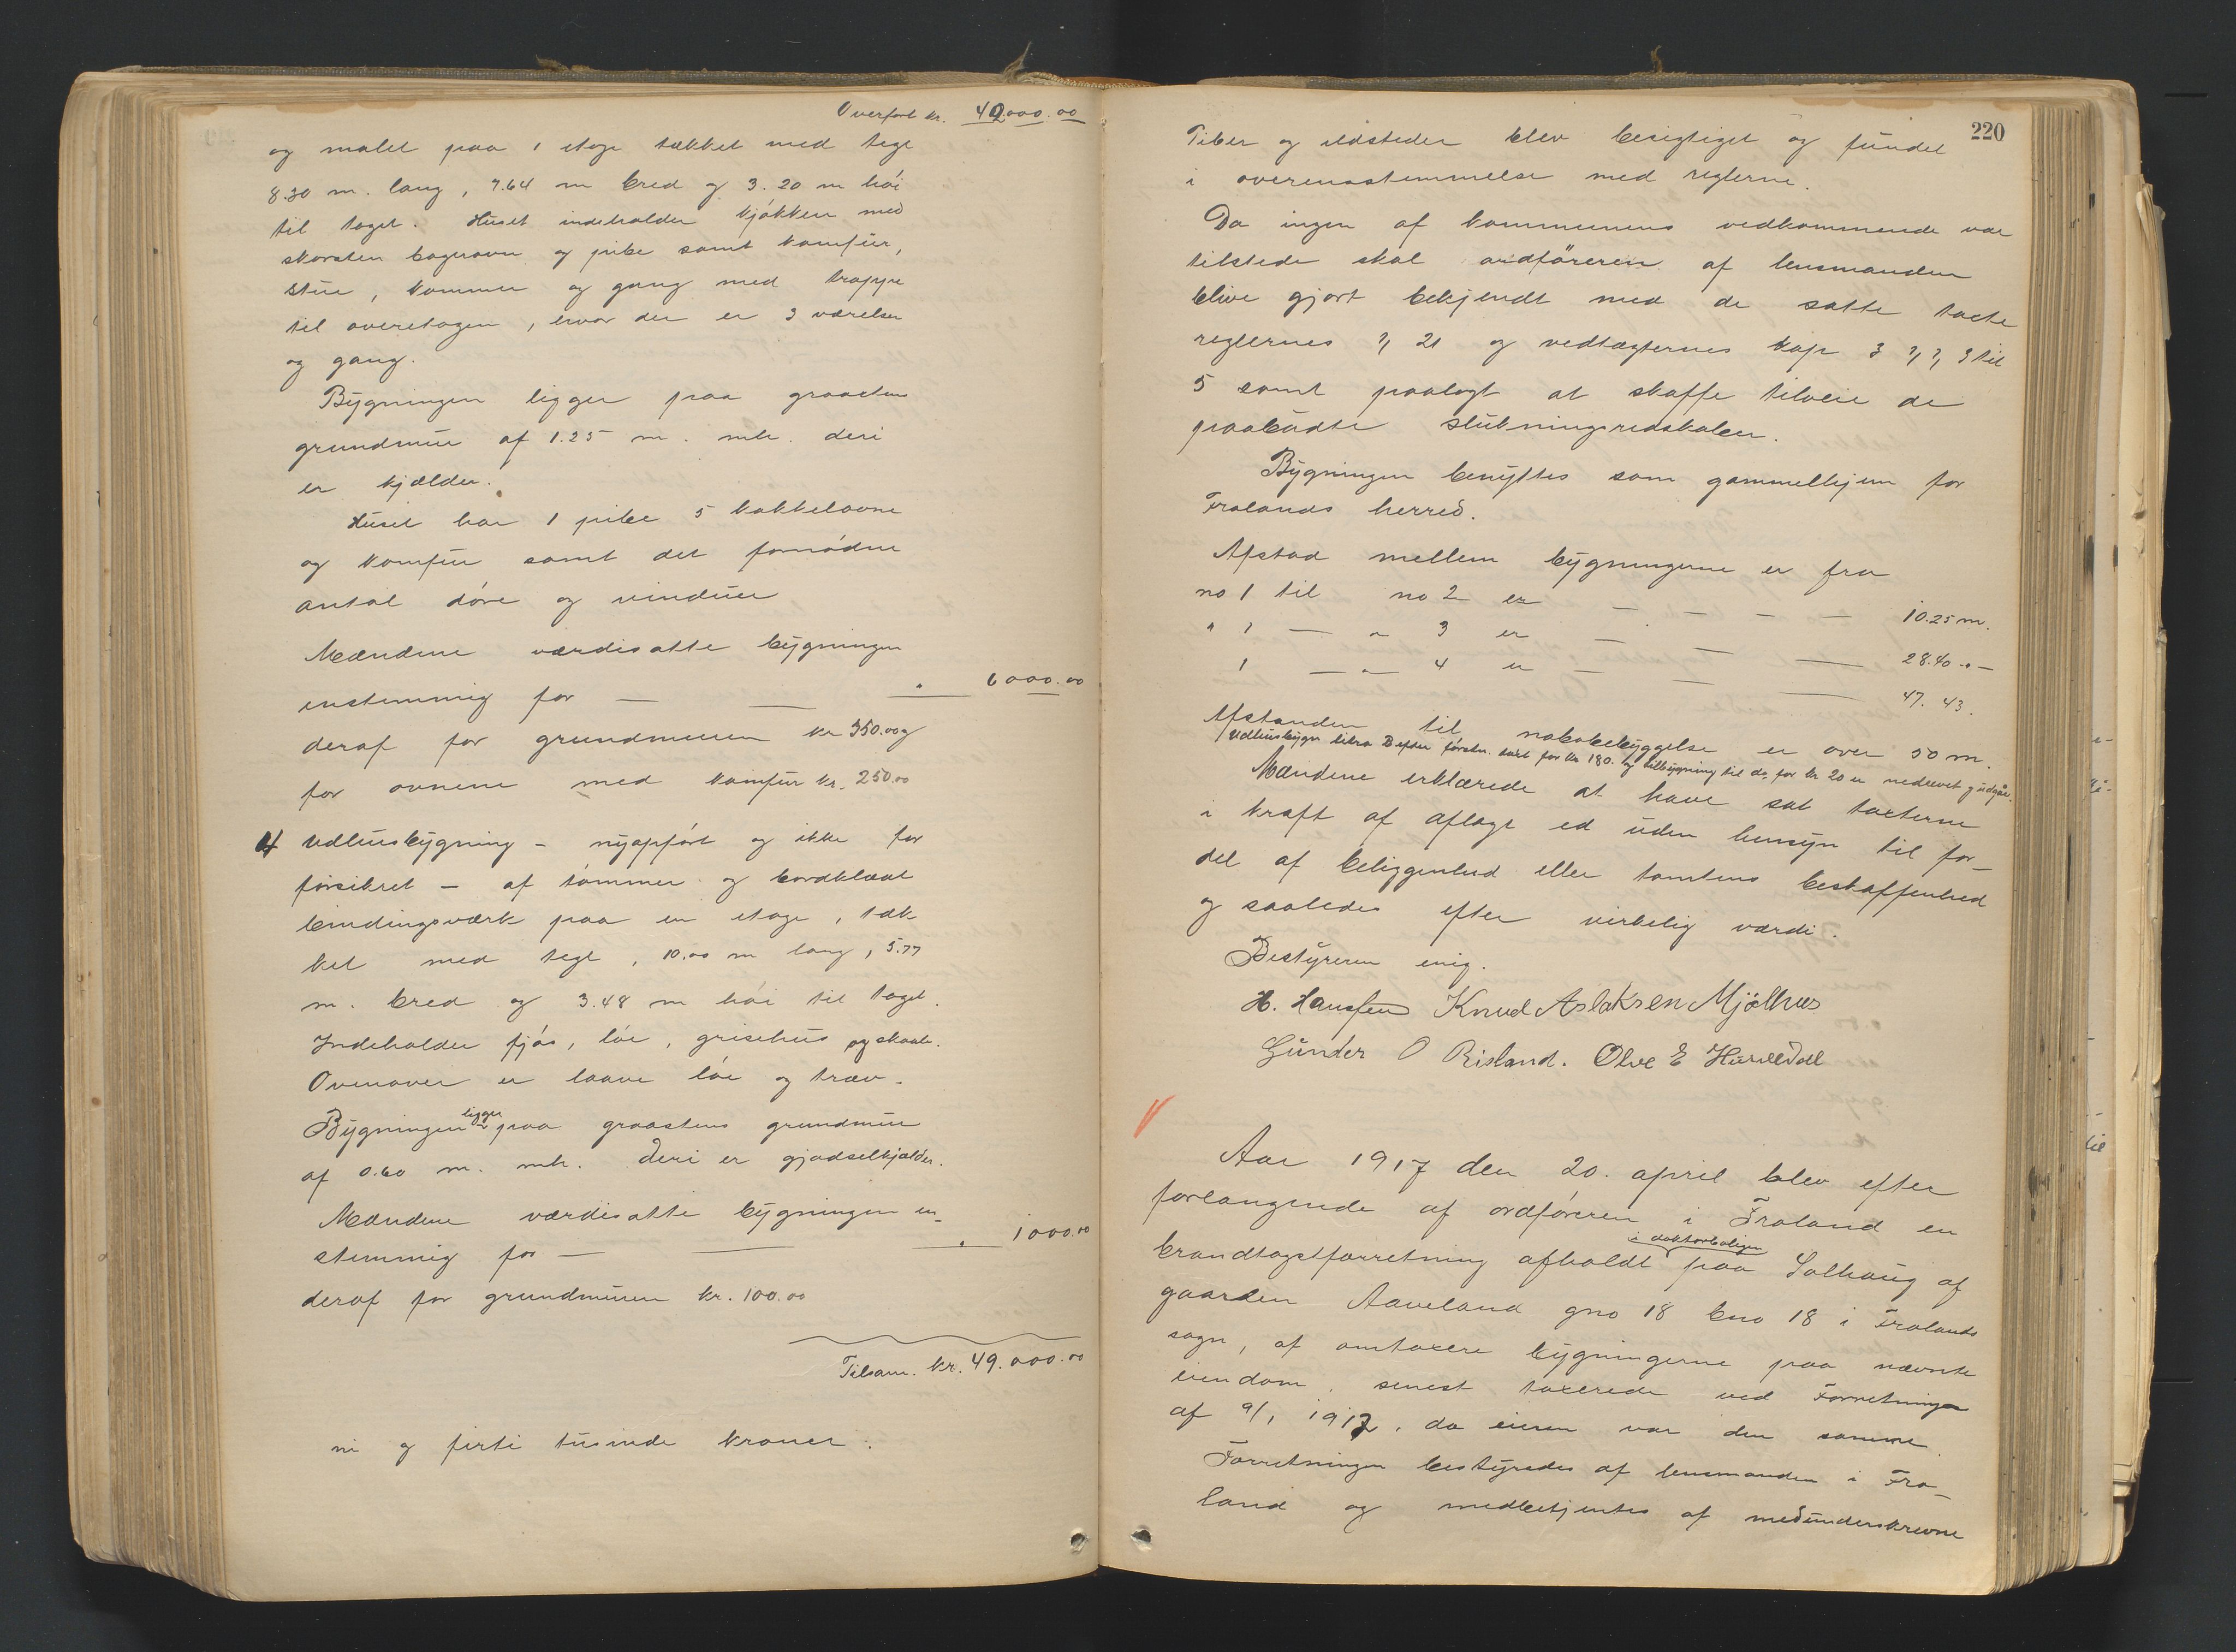 Overført kr. 42000.00
og malet paa 1 etage tækket med tegl
8.30 m. lang, 7.64 m bred og 3.20 m høi
til taget. Huset indeholder kjøkken med
skorsten bagerovn og pibe samt komfür,
stue, kammer og gang med trappe
til overetagen, hvor der er 3 værelser
og gang.
Bygningen ligger paa graastens
grundmur af 1.25 m. mh. deri
er kjælder.
Huset har 1 pibe 5 kakkelovne
og komfür samt det fornødne
antal døre og vinduer
Mændene værdisatte bygningen
enstemmig for — — " 6000.00
deraf for grundmuren kr 350.00 og
for ovnene med komfür kr. 250.00
4 Udhusbygning - nyopført og ikke før
forsikret - af tømmer og bordklædt
bindingsværk paa en etage, tæk
ket med tegl, 10.00 m lang, 5.77
m. bred og 3.48 m høi til taget.
Indeholder fjøs, løe, grisehus og skaale.
Ovenover er laave løe og træv.
Bygningen ligger paa graastens grundmur
af 0.60 m. mh. Deri er gjødselkjælder.
Mændene værdisatte bygningen en-
stemmig for — — " 1000.00
deraf for grundmuren kr. 100.00
Tilsam. kr. 49.000.00
ni og firti tusinde kroner.
220
Piber og ildsteder blev besigtiget og fundet
i overensstemmelse med reglerne.
Da ingen af kommunens vedkommende var
tilstede skal ordføreren af lensmanden
blive gjort bekjendt med de satte takte
reglernes § 21 og vedtægternes kap 3 §§ 3 til
5 samt paalagt at skaffe tilveie de
paabudte slukningsredskaber.
Bygningen benyttes som gammelhjem for
Frolands herred.
Afstad mellem bygningerne er fra
no 1 til no 2 er — — — — 10.25 m.
" 1 — " 3 er — — — 28.40 -"-
1 — " 4 er — — — 47.43.
Afstanden til nabobebyggelse er over 50 m.
Udhusbygn litra D efter førstn. takt for kr 180. og tilbygning til do for kr 20 er nedrevet og udgår.
Mændene erklærede at have sat takterne
i kraft af aflagt ed uden hensyn til for-
del af beliggenhed eller tomtens beskaffenhed
og saaledes efter virkelig værdi.
Bestyreren enig.
H. Hansen Knud Aslaksen Mjølhus
Gunder O Risland. Olve E Hurveldal
Aar 1917 den 20. april blev efter
forlangende af ordføreren i Froland en
i doktorboligen
brandtagstforretning afholdt paa Solhaug af
gaarden Aaveland gno 18 bno 18 i Frolands
sogn, af omtaxere bygningerne paa nævnte
eiendom, senest taxerede ved Forretninge
af 9/1 1912, da eieren var den samme.
Forretningen bestyredes af lensmanden i Fro-
land og medbetjentes af medunderskrevne